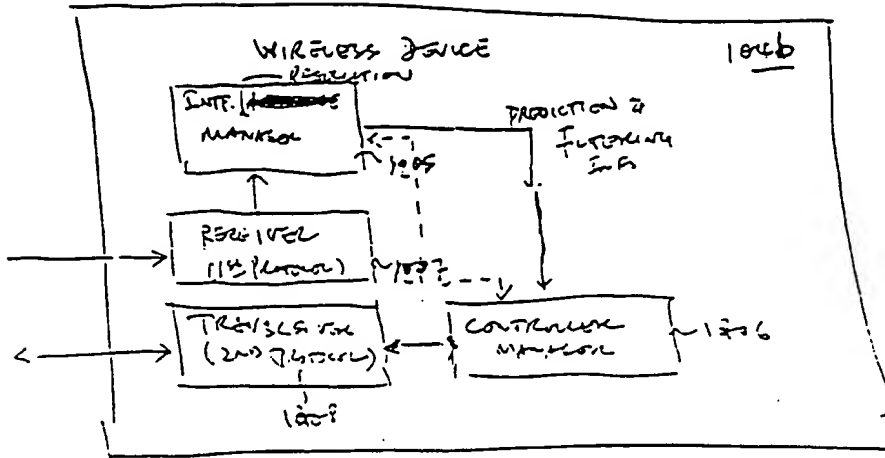 WIRELESS DEVICE
104b
INTF.
MANAGER
PREDICTION &
INFO
1005
RECEIVER
(1st PROTOCOL)
1007
TRANSCEIVER
(2ND PROTOCOL)
CONTROLLER
MANAGER
1006
1008